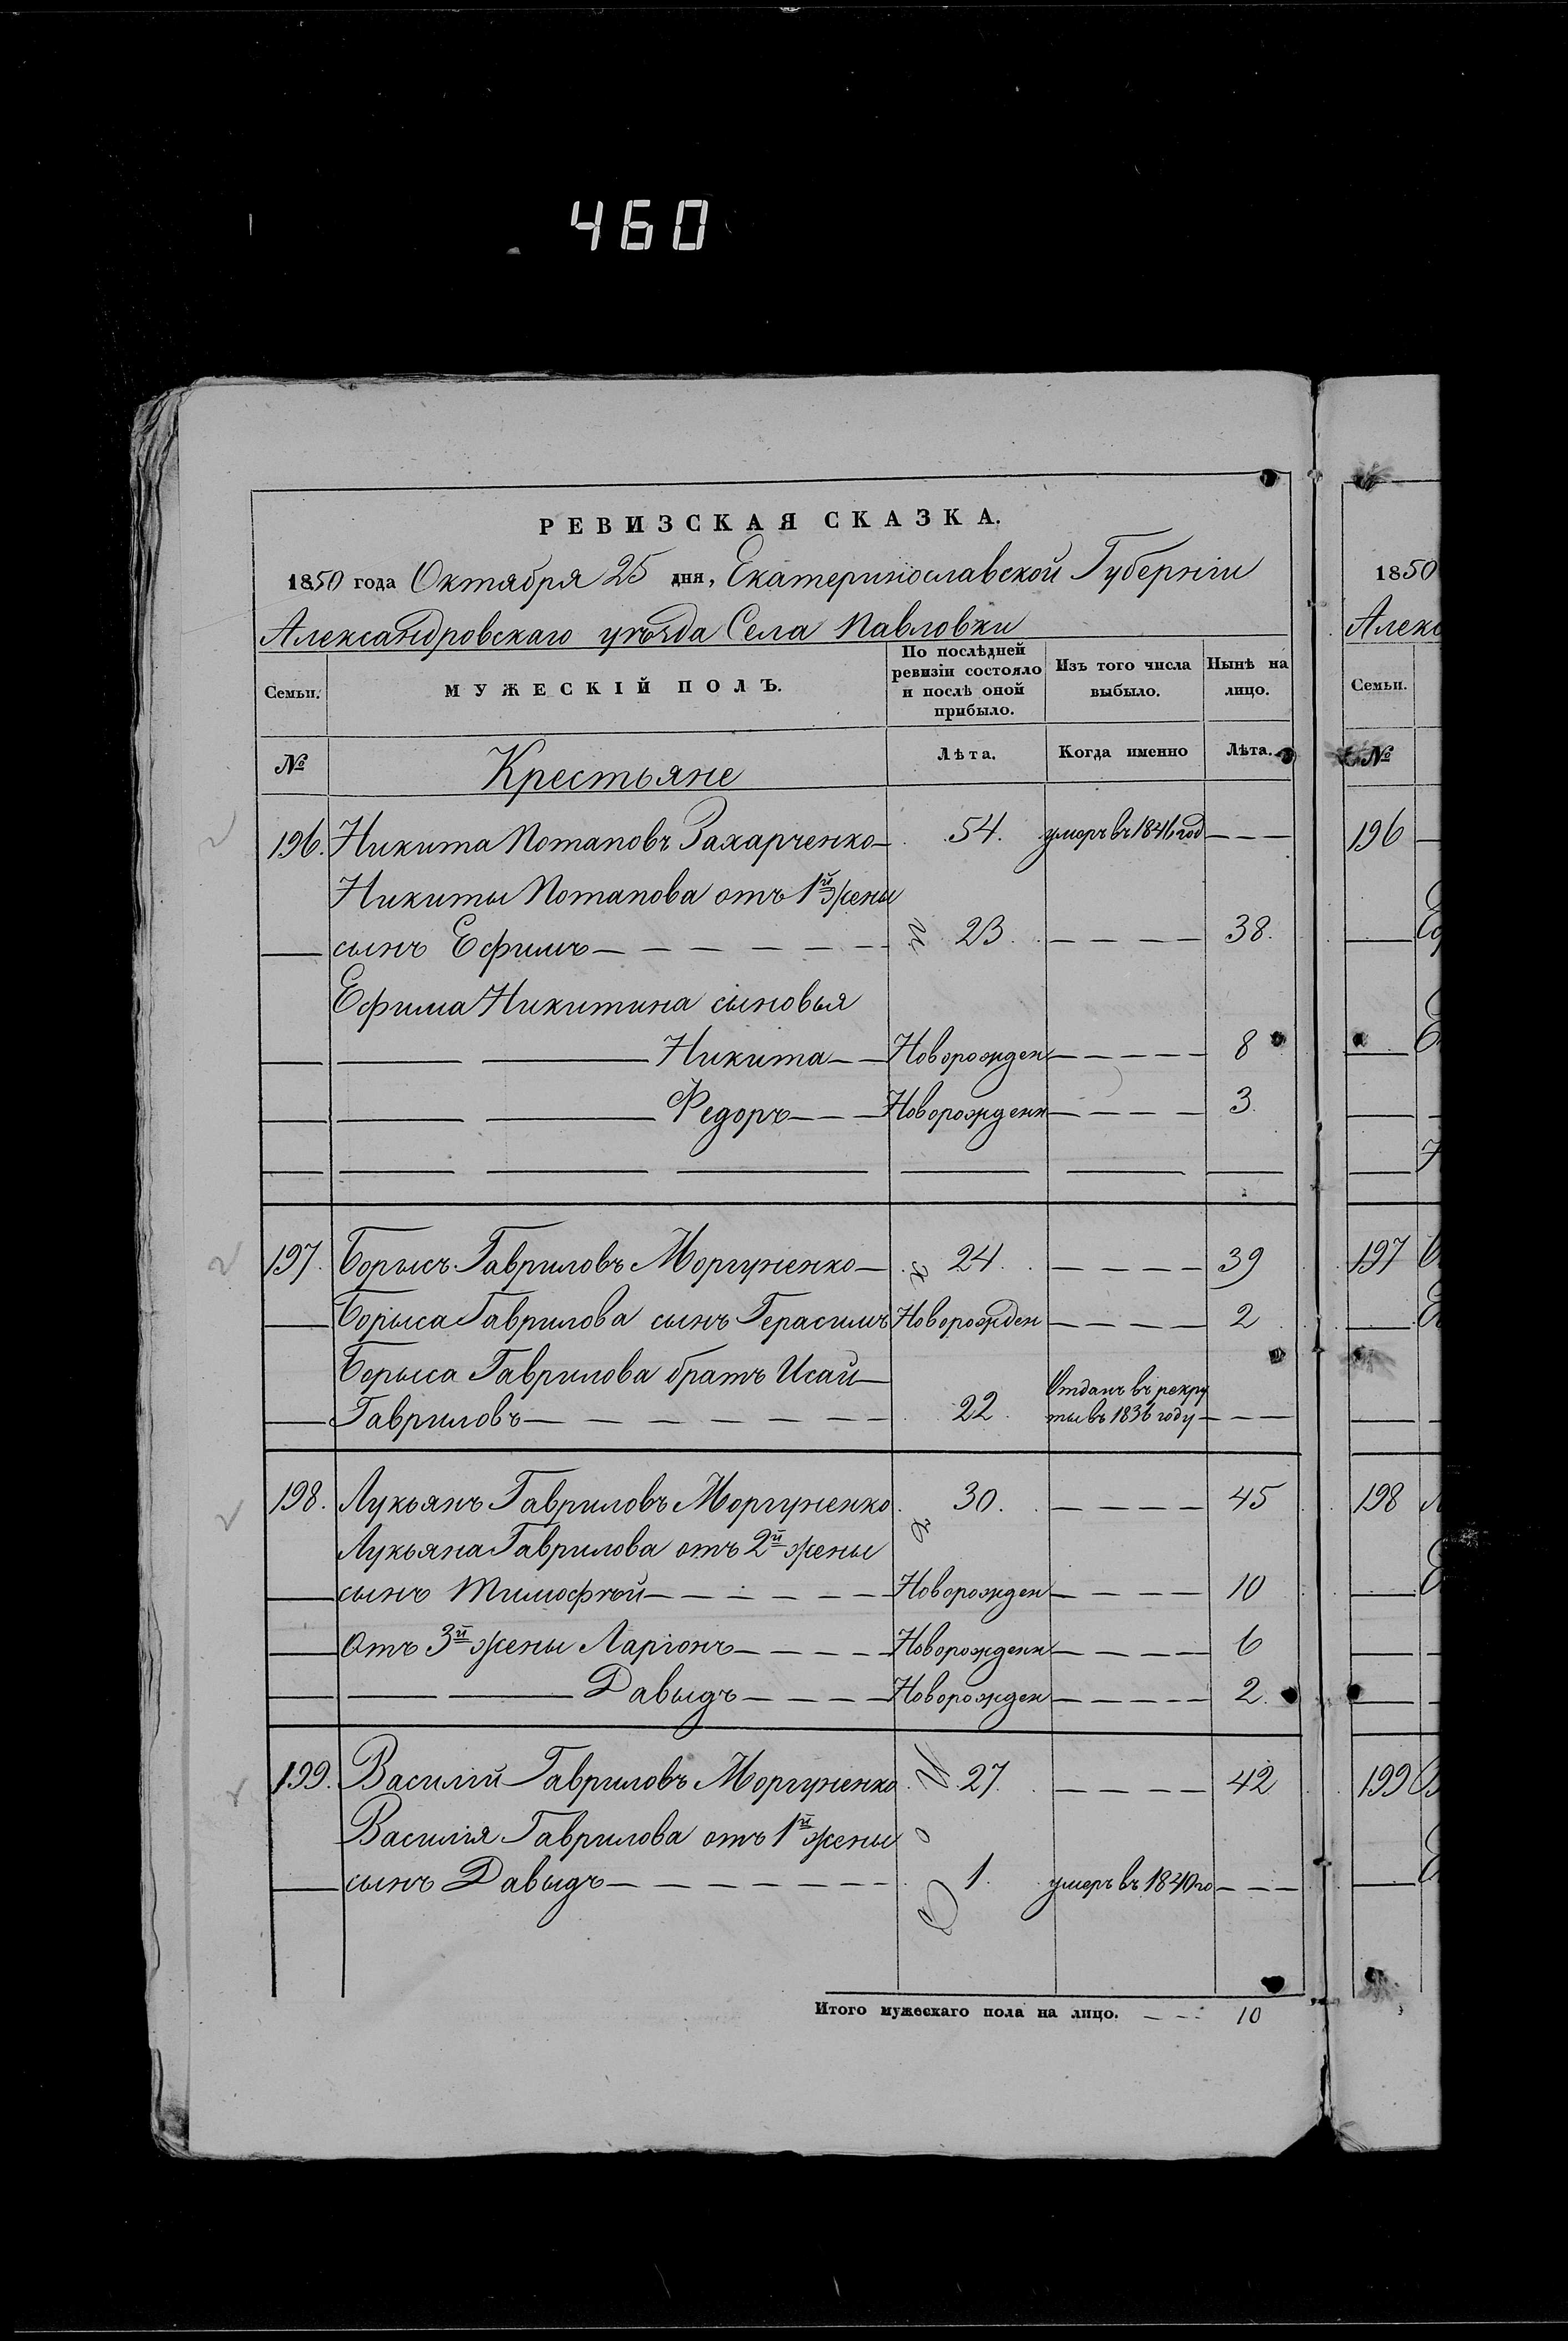 460
РЕВИЗСКАЯ СКАЗКА.
1850 года Октября 25 дня, Екатеринославской Губерніи
Александровскаго уѣзда Села Павловки
Семьи. МУЖЕСКІЙ ПОЛЪ. По послѣдней ревизіи состояло и послѣ оной прибыло. Изъ того числа выбыло. Нынѣ на лицо.
№ Крестьяне Лѣта. Когда именно Лѣта.
196. Никита Потаповъ Захарченко 54. умеръ въ 1846 год
Никиты Потапова отъ 1й жены
сынъ Ефимъ 23. 38.
Ефима Никитина сыновья
Никита Новорожден 8
Федоръ Новорожденн 3
197. Борысъ Гавриловъ Моргуненко 24. 39
Борыса Гаврилова сынъ Герасимъ Новорожден 2
Борыса Гаврилова братъ Исай
Гавриловъ 22. Отданъ въ рекру
ты въ 1836 году
198. Лукьянъ Гавриловъ Моргуненко 30. 45
Лукьяна Гаврилова отъ 2й жены
сынъ Тимофѣй Новорожден 10
Отъ 3й жены Ларіонъ Новорожденн 6
Давыдъ Новорожден 2.
199. Василій Гавриловъ Моргуненко 27. 42
Василія Гаврилова отъ 1й жены
сынъ Давыдъ 1. умеръ въ 1840 го
Итого мужескаго пола на лицо. 10
1850
Алекс
Семьи.
№
196
197
198
199